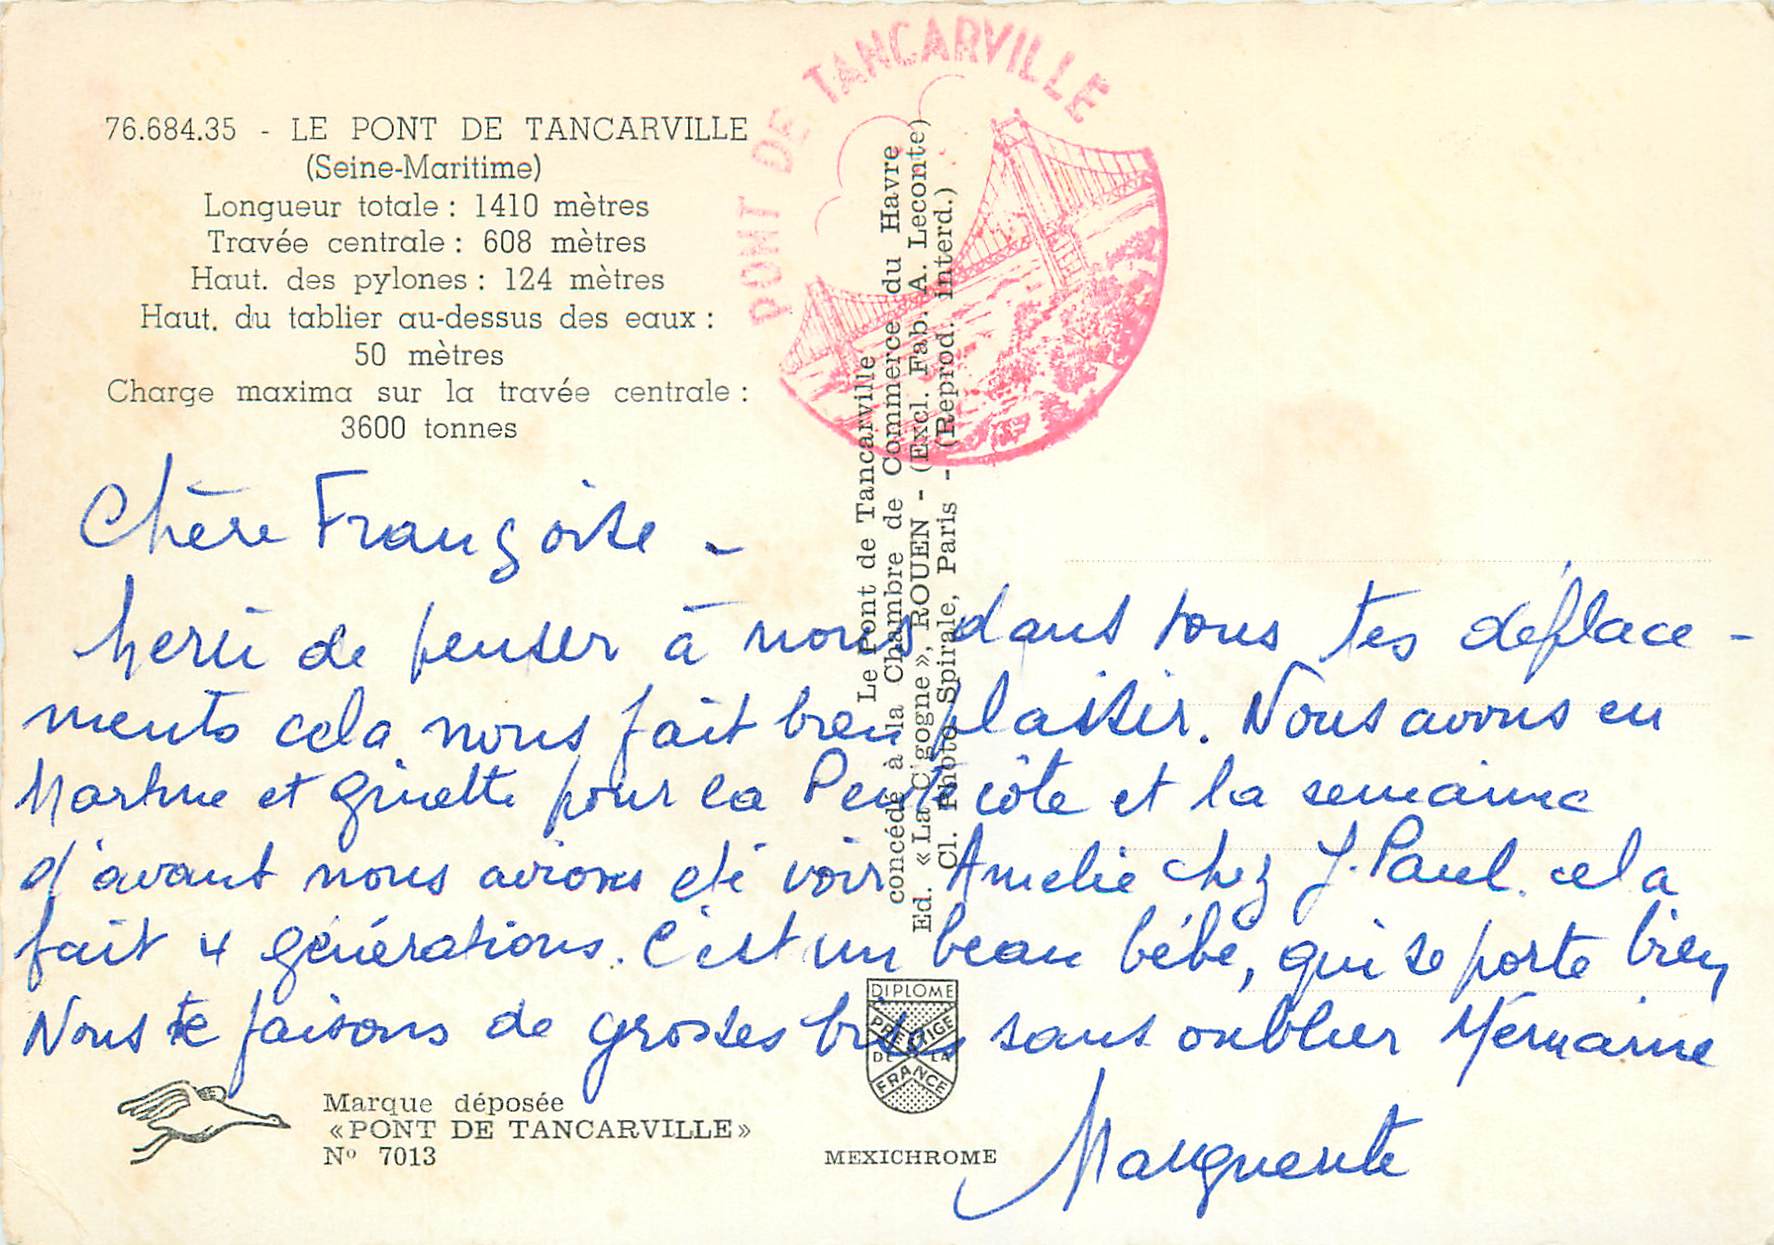 76.684.35 - LE PONT DE TANCARVILLE
(Seine-Maritime)
Longueur totale : 1410 mètres
Travée centrale : 608 mètres
Haut. des pylones : 124 mètres
Haut. du tablier au-dessus des eaux :
50 mètres
Charge maxima sur la travée centrale :
3600 tonnes
PONT DE TANCARVILLE
Le Pont de Tancarville
concédé à la Chambre de Commerce du Havre
Ed. «La C'gogne», ROUEN - (Excl. Fab. A. Leconte)
Cl. Photo Spirale, Paris - (Reprod. interd.)
Chère Françoise -
Merci de penser à nous dans tous tes déplace-
ments cela nous fait bien plaisir. Nous avons eu
Martine et Ginette pour la Pentecôte et la semaine
d'avant nous avions été voir Amelie chez J. Paul. cela
fait 4 générations. C'est un beau bébé, qui se porte bien
Nous te faisons de grosses bises sans oublier Mémaine
Marguerite
Marque déposée
«PONT DE TANCARVILLE»
Nº 7013
DIPLOME
PRESTIGE
DE LA
FRANCE
MEXICHROME